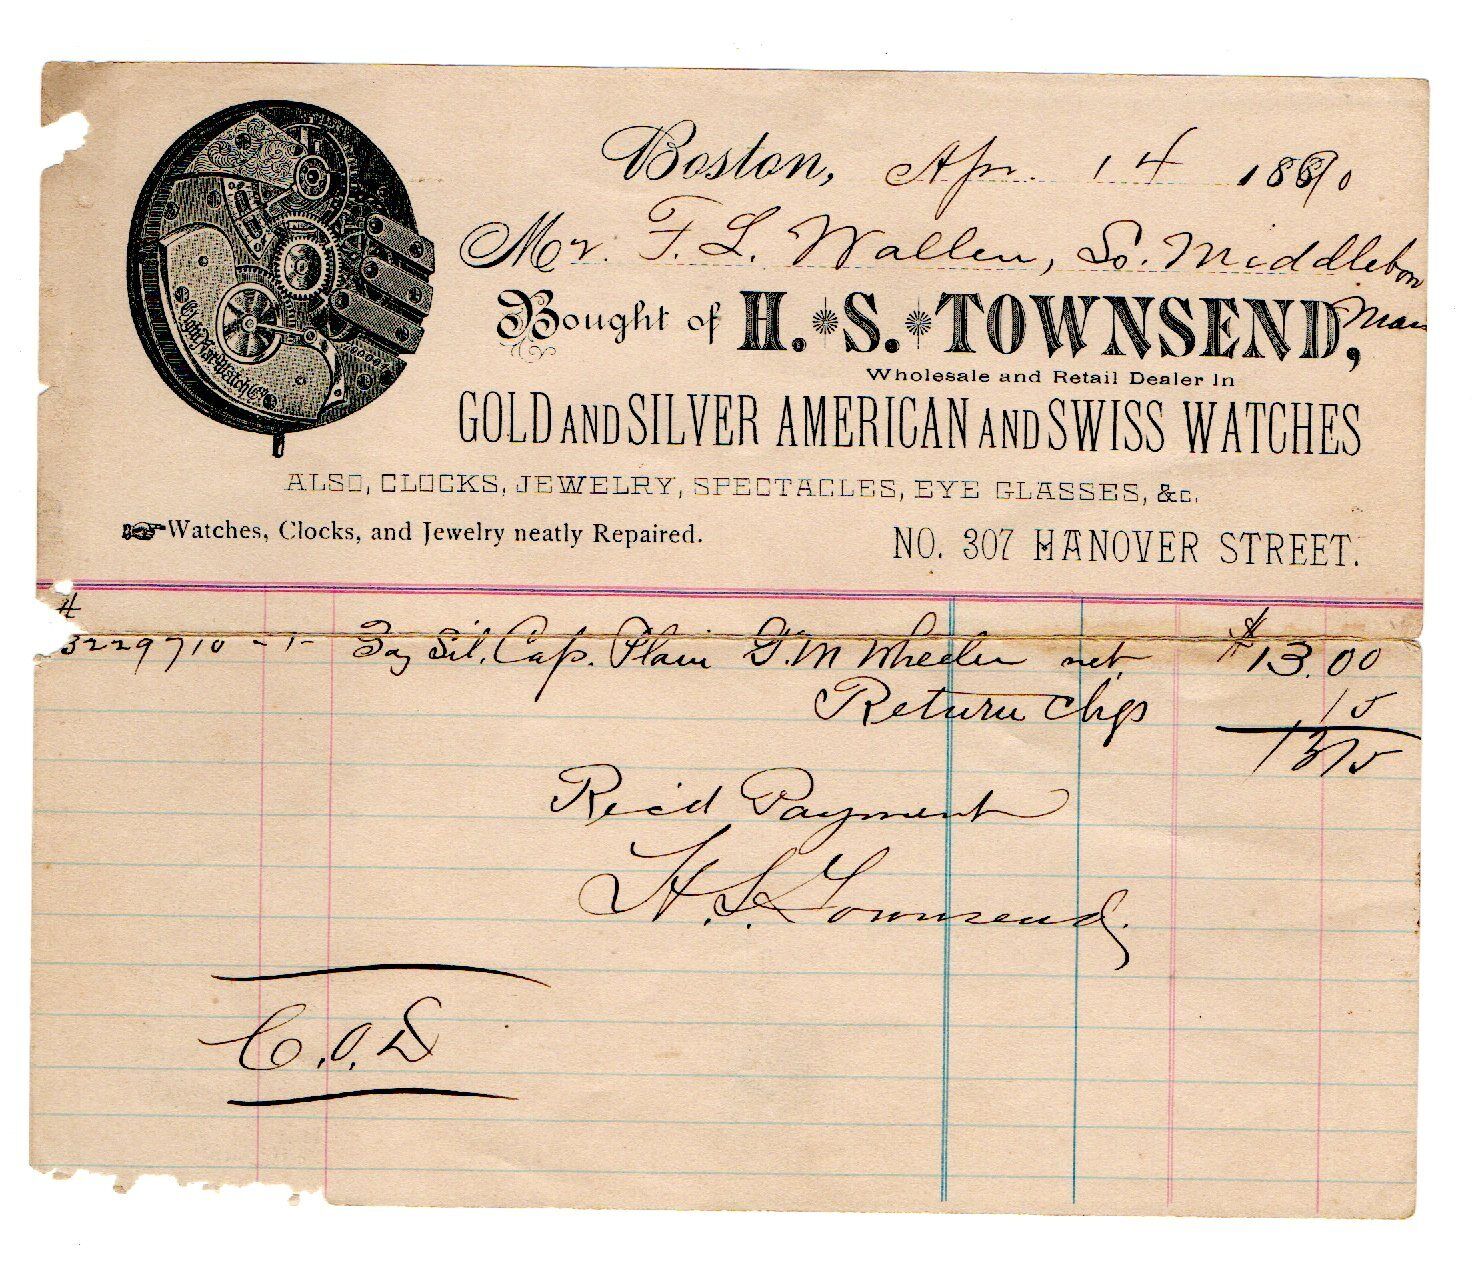 Boston, Apr. 14 1890
Mr. F. L. Wallen, So. Middleboro
Mass
Bought of H. S. TOWNSEND,
Wholesale and Retail Dealer in
GOLD AND SILVER AMERICAN AND SWISS WATCHES
ALSO, CLOCKS, JEWELRY, SPECTACLES, EYE GLASSES, &c.
Watches, Clocks, and Jewelry neatly Repaired.
NO. 307 HANOVER STREET.
#
3229710 - 1 - 3 oz Sil. Cap. Plain G. M Wheeler net $13.00
Return chgs 15
1315
Rec'd Payment
H. S. Townsend.
C.O.D